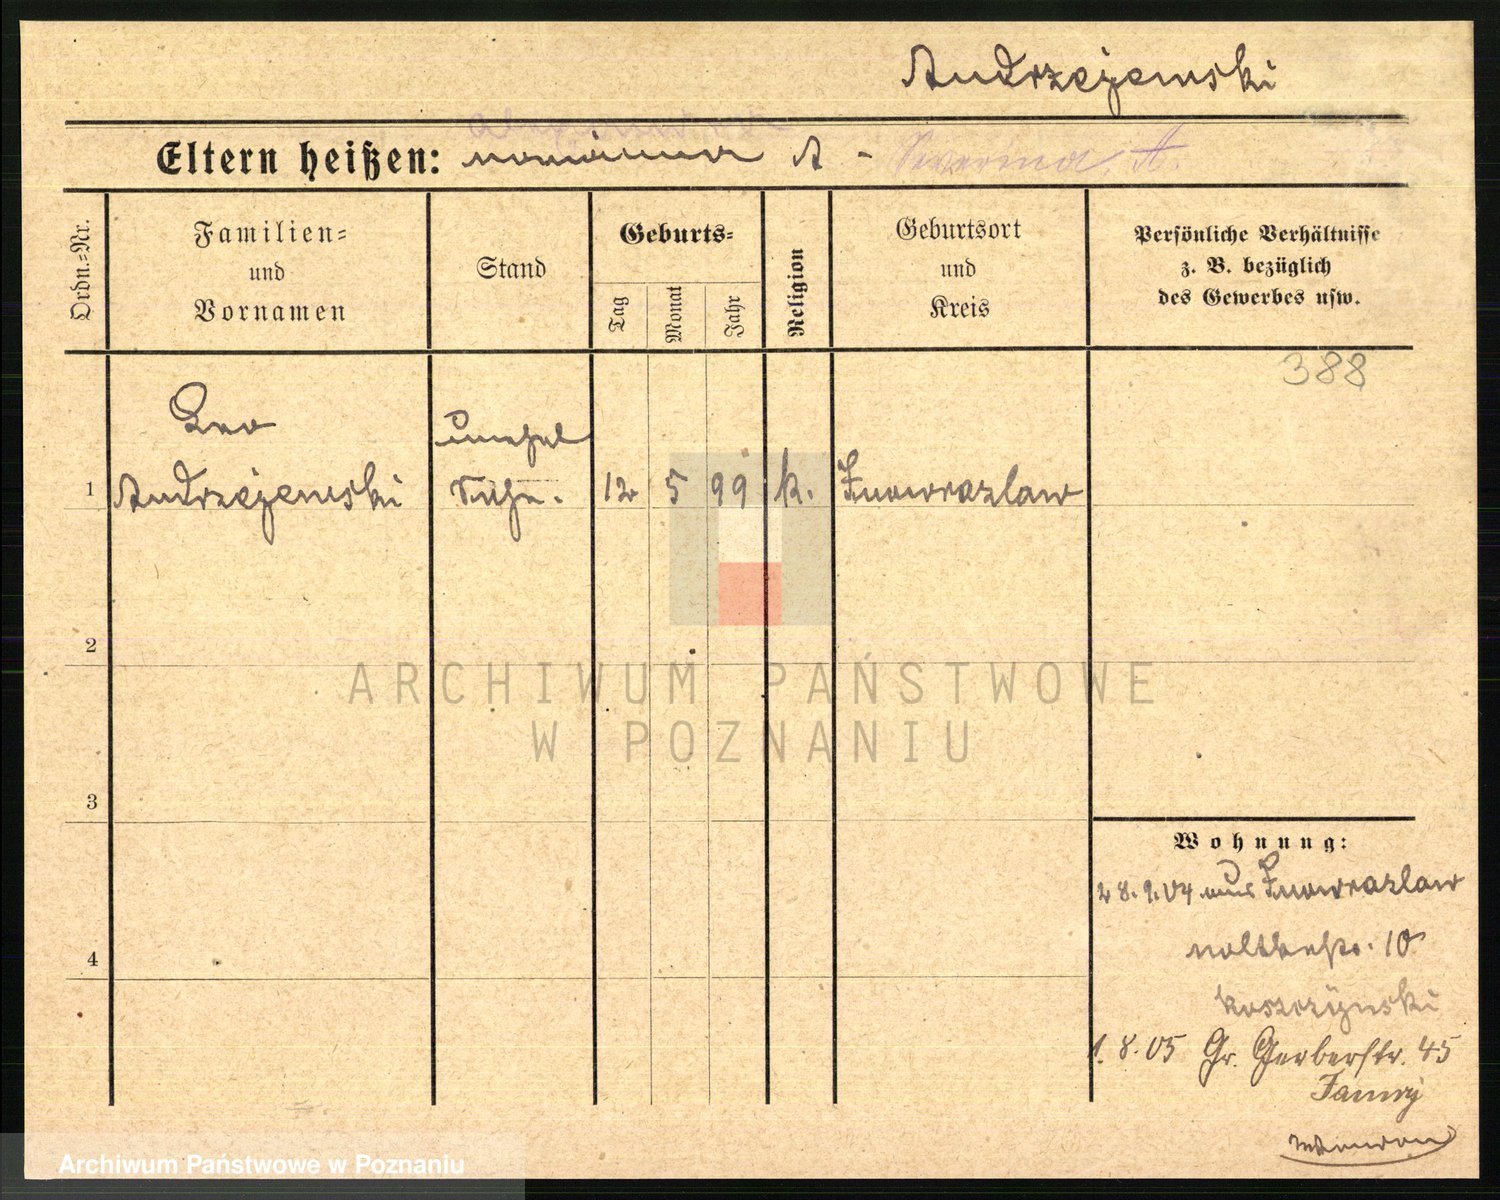 Andrzejewski
Eltern heißen: A - Severina A.
Ordn.-Nr.
Familien-
und
Vornamen
Stand
Geburts-
Tag
Monat
Jahr
Religion
Geburtsort
und
Kreis
Persönliche Verhältnisse
z. B. bezüglich
des Gewerbes usw.
388
Leo
unehel
1 Andrzejewski Sohn. 12 5 99 k. Inowrazlaw
2
ARCHIWUM PAŃSTWOWE
W POZNANIU
3
Wohnung:
28.9.04 aus Inowrazlaw
4
Moltkestr. 10
1.8.05 Gr. Gerberstr. 45
Archiwum Państwowe w Poznaniu